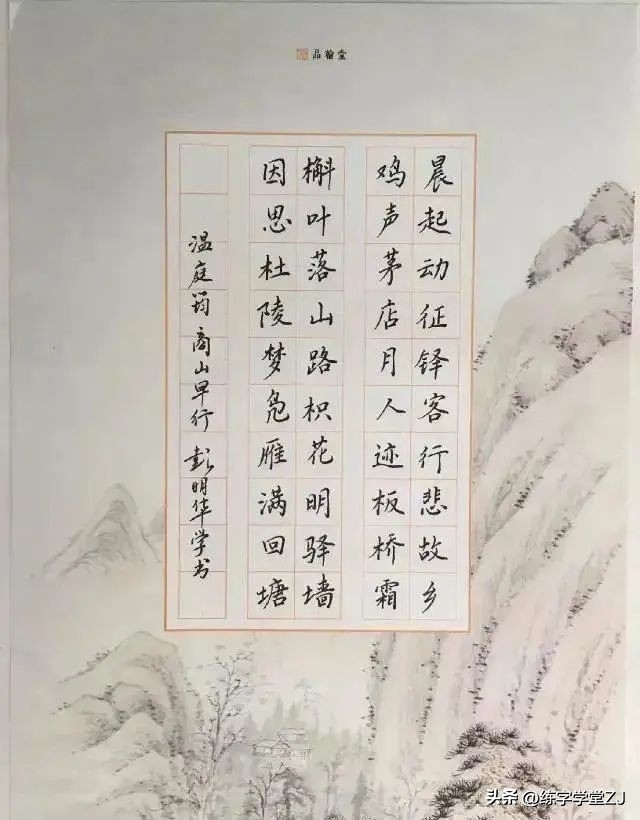 品翰堂
晨起动征铎客行悲故乡
鸡声茅店月人迹板桥霜
槲叶落山路枳花明驿墙
因思杜陵梦凫雁满回塘
温庭筠商山早行彭明华学书
头条@练字学堂ZJ